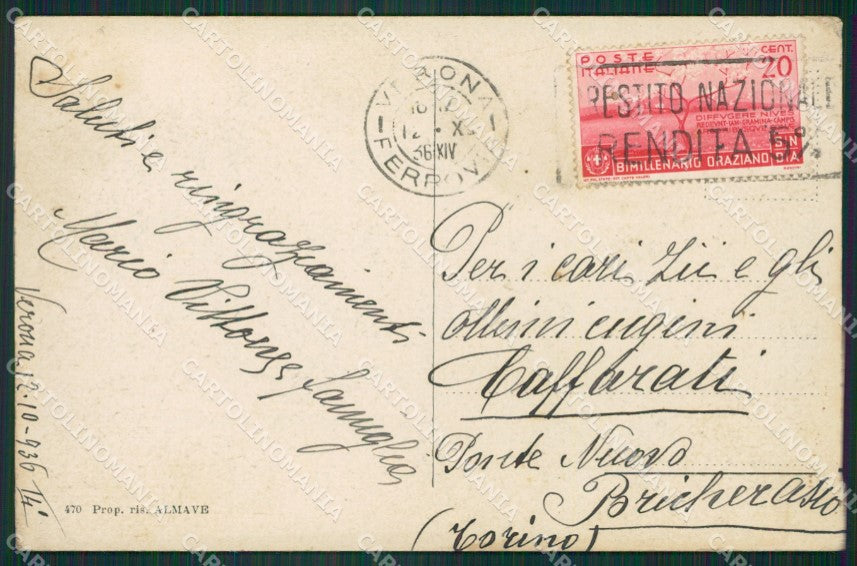 Saluti e ringraziamenti
Mario Vittorio famiglia
Verona 12-10-936 14°
470 Prop. ris. ALMAVE
VERONA
12 . X
36 XIV
FERROVIA
POSTE
ITALIANE
CENT.
20
DIFFVGERE NIVES
REDEVNT IAM GRAMINA CAMPIS
BIMILLENARIO ORAZIANO
PRESTITO NAZIONALE
RENDITA 5%
Per i cari Zii e gli
ottimi cugini
Caffarati
Ponte Nuovo
Bricherasio
(Torino)
CARTOLINOMANIA